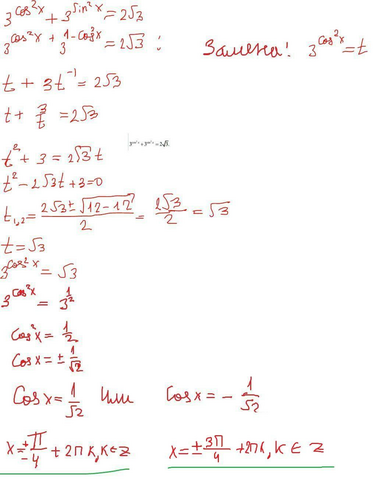 3^cos²x + 3^sin²x = 2√3
3^cos²x + 3^1-cos²x = 2√3 : Замена! 3^cos²x = t
t + 3t⁻¹ = 2√3
t + 3/t = 2√3
t² + 3 = 2√3 t
t² - 2√3t + 3 = 0
t₁,₂ = (2√3 ± √(12-12))/2 = 2√3/2 = √3
t = √3
3^cos²x = √3
3^cos²x = 3^1/2
Cos²x = 1/2
Cosx = ± 1/√2
Cosx = 1/√2 или Cosx = - 1/√2
x = ± π/4 + 2πk, k ∈ Z x = ± 3π/4 + 2πk, k ∈ Z